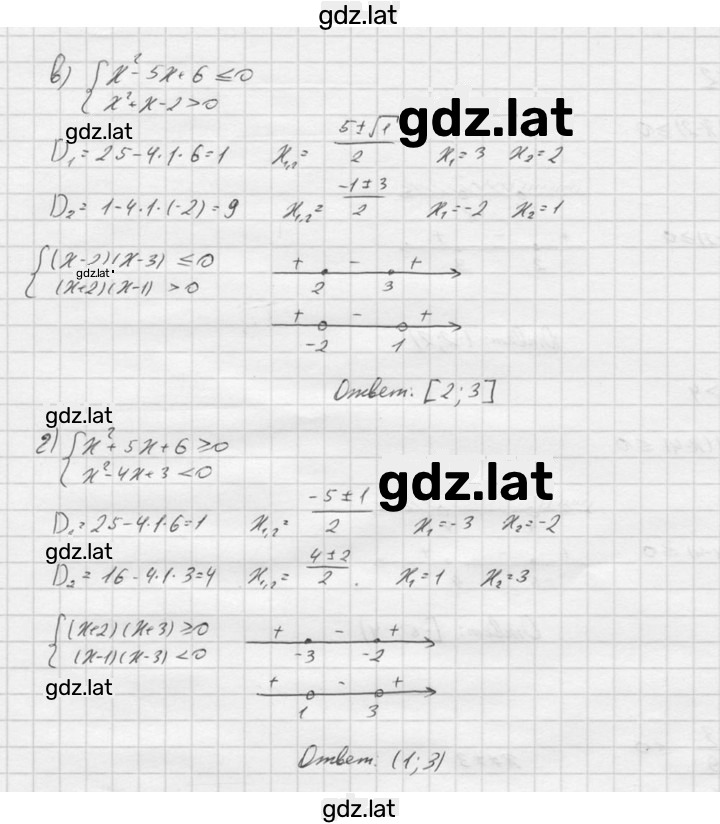 gdz.lat
в) { x² - 5x + 6 ≤ 0
x² + x - 2 > 0
gdz.lat
gdz.lat
D₁ = 25 - 4·1·6 = 1   x₁,₂ = (5 ± √1)/2   x₁ = 3   x₂ = 2
D₂ = 1 - 4·1·(-2) = 9   x₁,₂ = (-1 ± 3)/2   x₁ = -2   x₂ = 1
{ (x-2)(x-3) ≤ 0   + - +
gdz.lat
2 3
(x+2)(x-1) > 0
+ - +
-2 1
Ответ: [2; 3]
gdz.lat
г) { x² + 5x + 6 ≥ 0
x² - 4x + 3 < 0
gdz.lat
D₁ = 25 - 4·1·6 = 1   x₁,₂ = (-5 ± 1)/2   x₁ = -3   x₂ = -2
gdz.lat
D₂ = 16 - 4·1·3 = 4   x₁,₂ = (4 ± 2)/2.   x₁ = 1   x₂ = 3
{ (x+2)(x+3) ≥ 0   + - +
(x-1)(x-3) < 0   -3 -2
gdz.lat
+ - +
1 3
Ответ: (1; 3)
gdz.lat